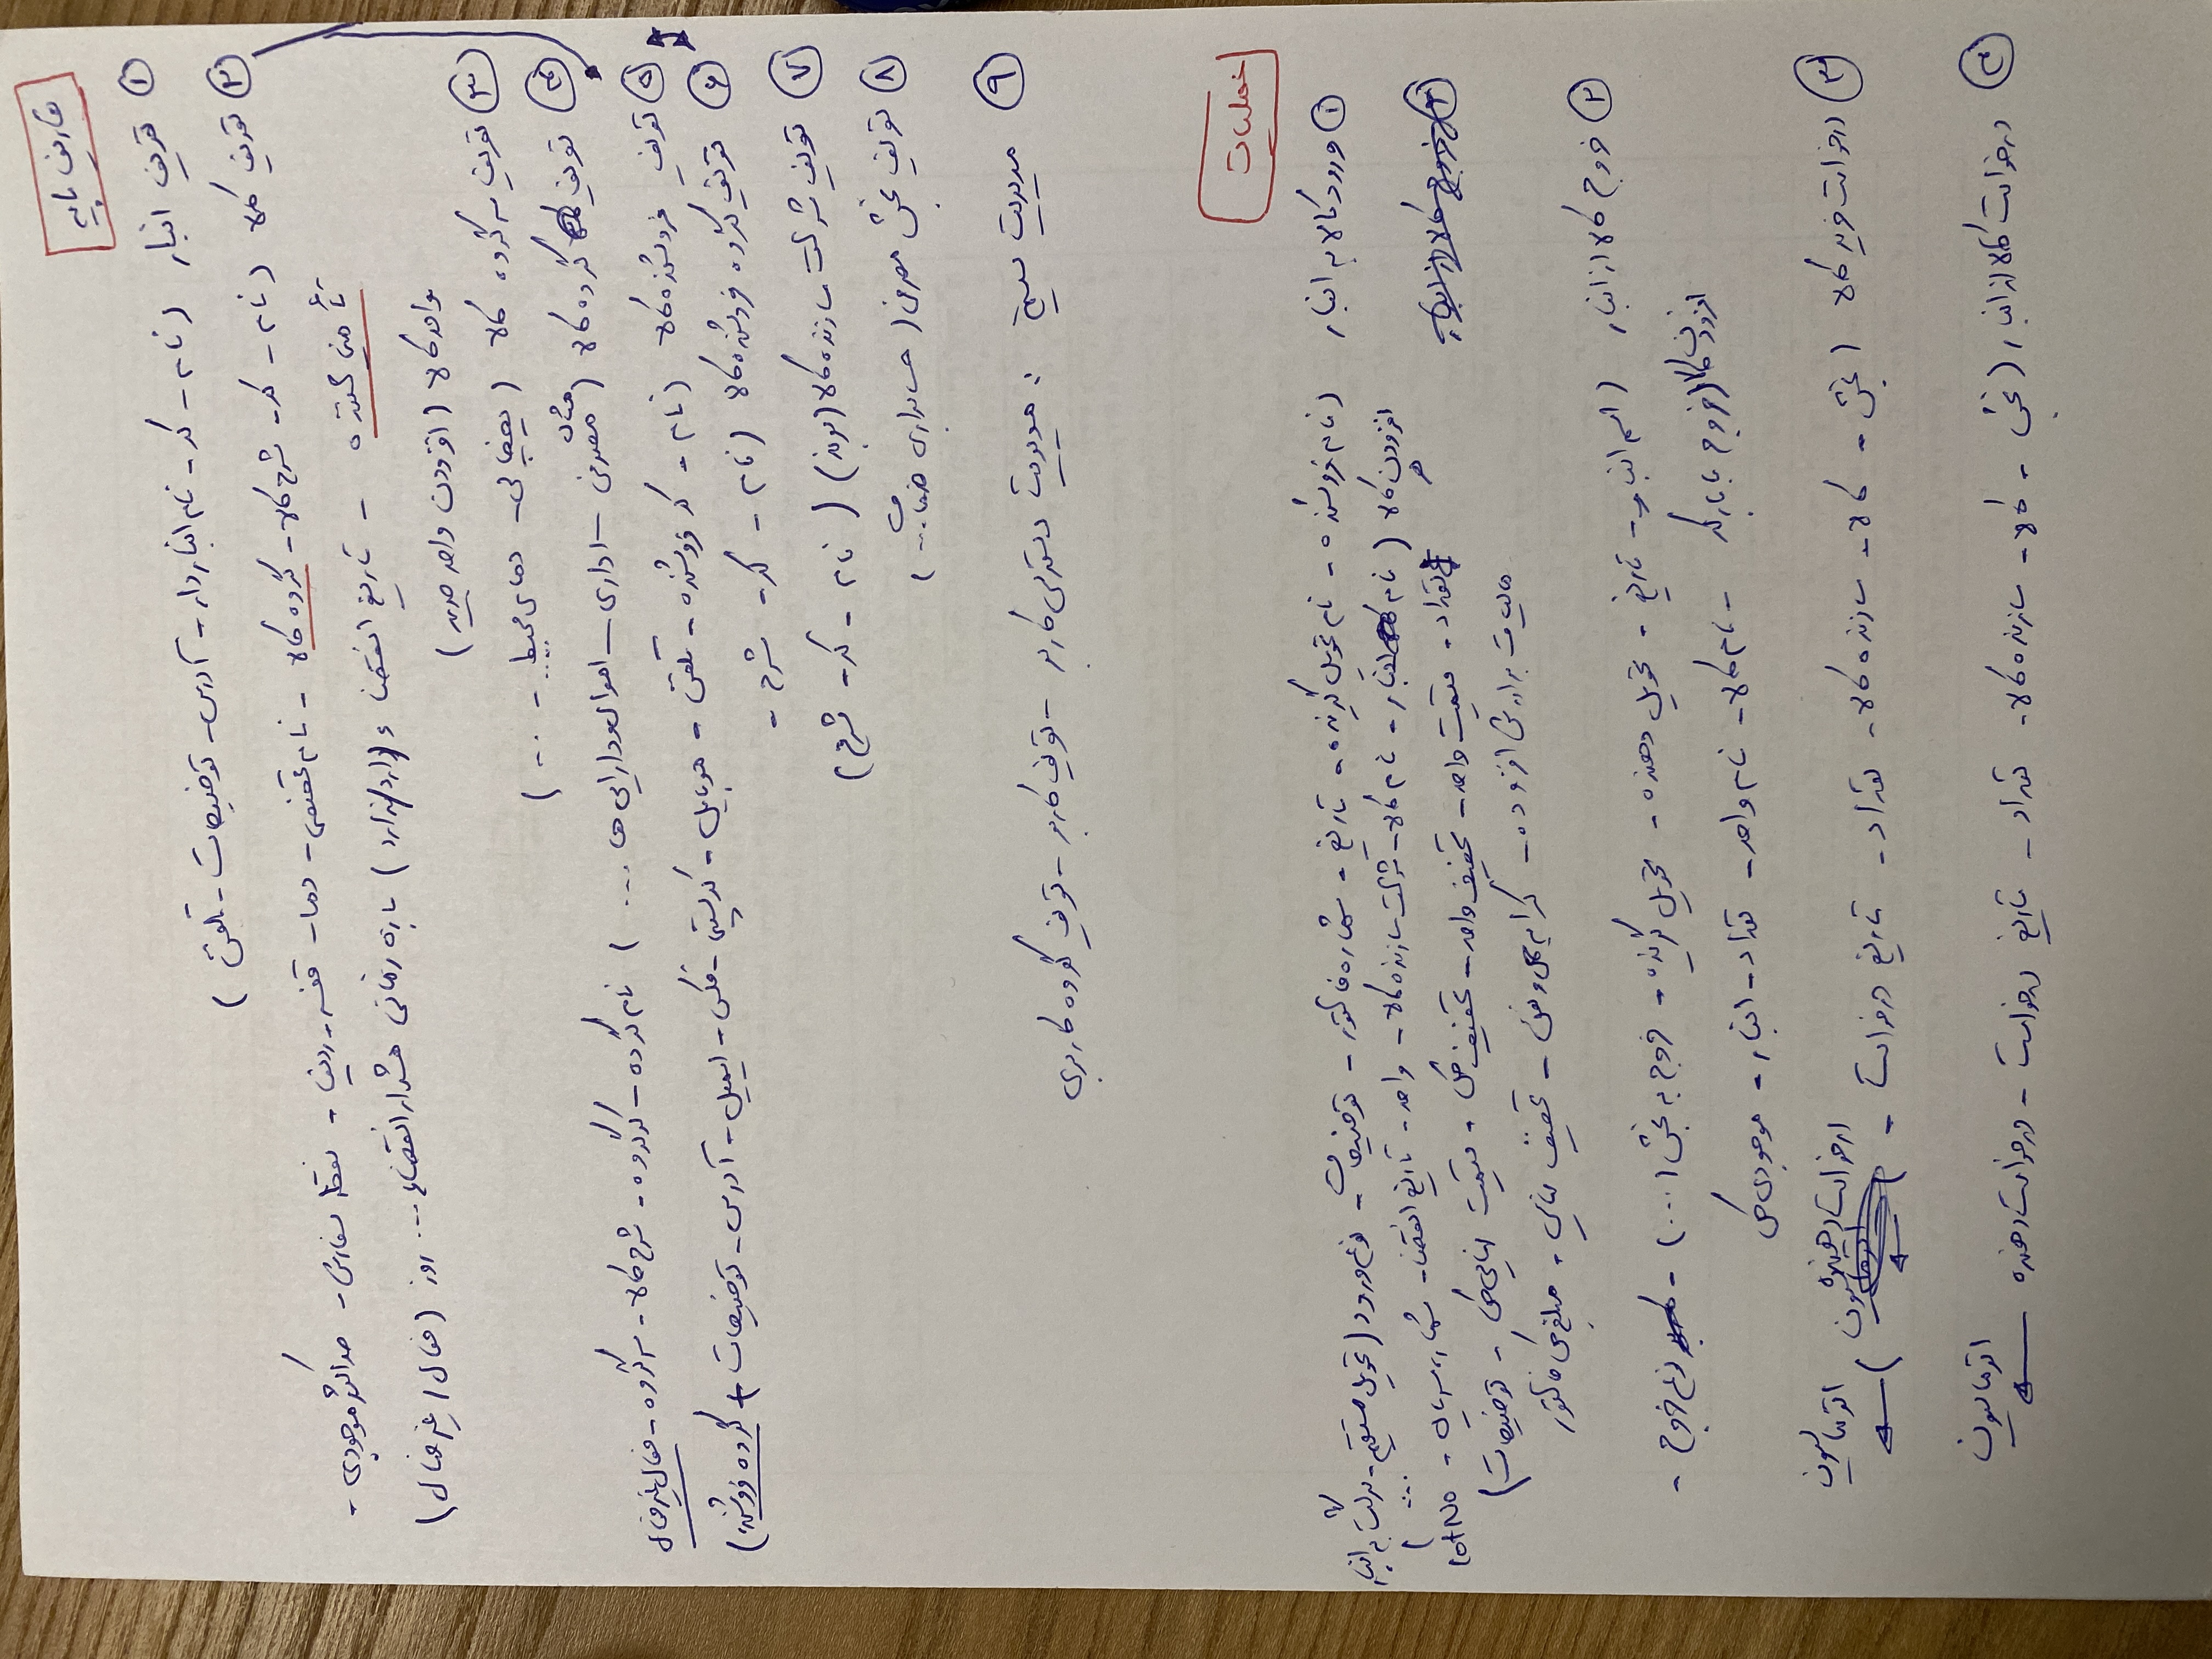 تعاریف پایه
۱ تعریف انبار (نام - کد - نام انباردار - آدرس - توضیحات - تلفن)
۲ تعریف کالا (نام - کد - شرح کالا - گروه کالا - نام تخصصی - دما - قفسه - ردیف - نقطه سفارش - حداکثر موجودی -
تأمین کننده - تاریخ انقضاء (دارد/ندارد) بازه زمانی هشدار انقضاء ... روز (فعال / غیرفعال)
واحد کالا (افزودن واحد جدید)
۳ تعریف سرگروه کالا (یخچالی - دمای محیط - ...)
۴ تعریف گروه کالا (مثال مصرفی - اداری - اموال و دارایی ها ...) نام گروه - کد گروه - شرح کالا - سرگروه - فعال غیرفعال
۵ تعریف فروشنده کالا (نام - کد فروشنده - تلفن - موبایل - کد پستی - فکس - ایمیل - آدرس - توضیحات + گروه فروشنده)
۶ تعریف گروه فروشنده کالا (نام - کد - شرح -
۷ تعریف شرکت سازنده کالا (برند) (نام - کد - شرح)
۸ تعریف بخش مصرفی (حسابداری خدمات ...)
۹ مدیریت سیستم : مدیریت دسترسی کاربر - تعریف کاربر - تعریف گروه کاربری
عملیات
۱ ورود کالا به انبار (نام فروشنده - نام تحویل گیرنده - تاریخ - شماره فاکتور - توضیحات - نوع ورود (تحویل مستقیم - برگشت به انبار ...)
افزودن کالا (نام انبار - نام کالا - شرکت سازنده کالا - واحد - تاریخ انقضا - شماره سریال - Lot No
تعداد - قیمت واحد - تخفیف واحد - تخفیف کل - قیمت نهایی کل - توضیحات)
مالیات بر ارزش افزوده - کرایه حمل و نقل - تخفیف نهایی - مبلغ کل فاکتور
۲ خروج کالا از انبار (اسم انبار - تاریخ - تحویل دهنده - تحویل گیرنده - خروج به بخش (...) - نوع خروج -
افزودن کالا (خروج با بارکد - نام کالا - نام واحد - تعداد - انبار - موجودی کل
۳ درخواست خرید کالا (بخش - کالا - سازنده کالا - تعداد - تاریخ درخواست - درخواست دهنده) اتوماسیون
۴ درخواست کالا از انبار (بخش - کالا - سازنده کالا - تعداد - تاریخ درخواست - درخواست دهنده اتوماسیون